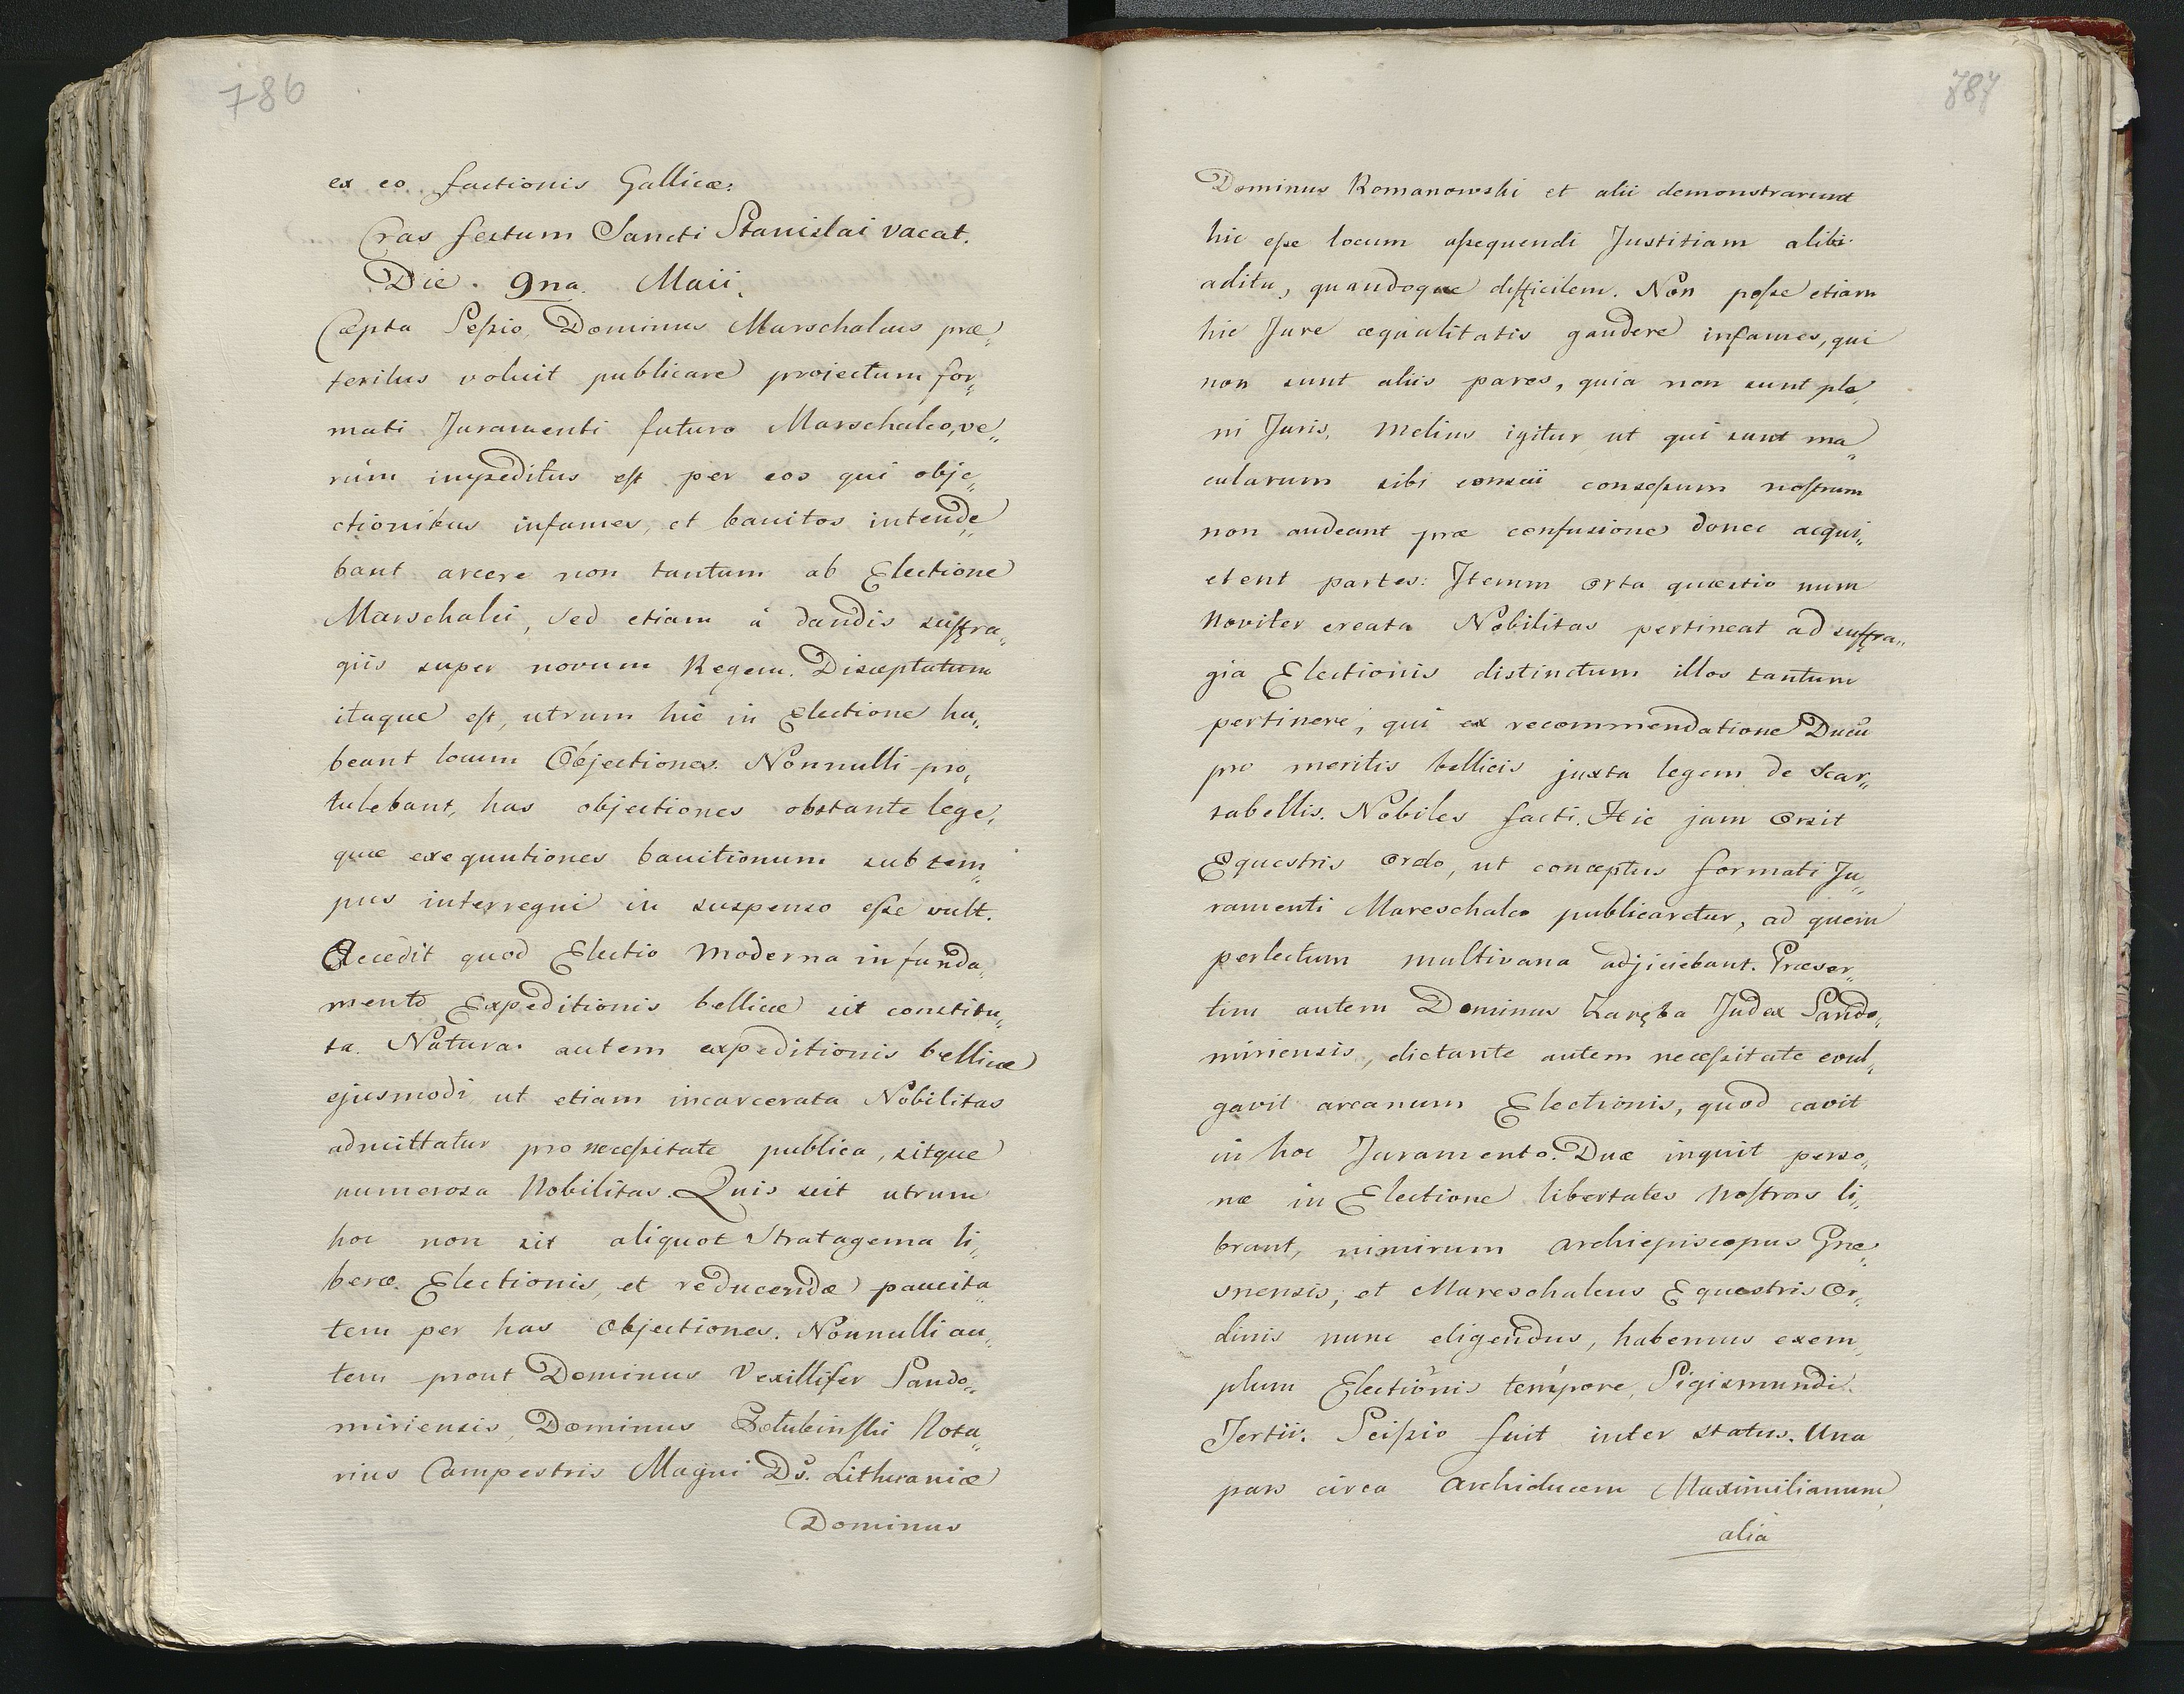 786
ex eo factionis Gallicæ:
Cras festum Sancti Stanislai vacat.
Die. 9na. Maii.
Cæpta Seſsio, Dominus Marschalcus præ„
teritus voluit publicare projectum for„
mati Juramenti futuro Marschalco, ve„
rúm impeditus eſt per eos qui obje„
ctionibus infames, et banitos intende„
bant arcere non tantum ab Electione
Marschalci, sed etiam á dandis suffra„
giis super novum Regem. Disceptatum
itaque eſt, utrum hic in Electione ha„
beant locum Objectiones. Nonnulli pro„
tulebant, has objectiones obstante lege,
quæ exequutiones banitionum sub tem„
pus interregni in suspenso eſse vult.
Accedit quod Electio moderna in funda„
mento Expeditionis bellicæ sit constitu„
ta. Natura autem expeditionis bellicæ
ejusmodi, ut etiam incarcerata Nobilitas
admittatur pro neceſsitate publica, sitque
numerosa Nobilitas. Quis scit utrum
hoc non sit aliquot Stratagema li„
beræ Electionis, et reducendæ paucita„
tem per has Objectiones. Nonnulli au„
tem prout Dominus Vexillifer Sando„
miriensis, Dominus Połubinſki Nota„
rius Campestris Magni Ds. Lithuaniæ
Dominus
787
Dominus Romanowski et alii demonstrarunt
hic eſse locum aſsequendi Justitiam alibi
aditu, quandoque difficilem. Non poſse etiam
hic Jure æqualitatis gaudere infames, qui
non sunt aliis pares, quia non sunt ple„
ni Juris, melius igitur, ut qui sunt ma„
cularum sibi conscii conseſsum noſtrum
non audeant præ confusione donec acqui„
etent partes: Itemm orta quæstio num
noviter creata Nobilitas pertineat ad suffra„
gia Electionis distinctum illos tantum
pertinere, qui ex recommendatione Ducū
pro meritis bellicis juxta legem de Scar„
tabellis. Nobiles facti. Hic jam orsit
Equestris Ordo, ut conceptus formati Ju„
ramenti Mareschalco publicaretur, ad quem
perlectum multivana adjiciebant. Præser„
tim autem Dominus Zaręba Judex Sando„
miriensis, dictante autem neceſsitate evul„
gavit arcanum Electionis, quod cavit
in hoc Juramento. Duæ inquit perso„
næ in Electione libertates noſtras li„
brant, nimirum Archiepiscopus Gne„
snensis, et Mareschalcus Equestris Or„
dinis nunc eligendus, habemus exem„
plum Electionis tempore, Sigismundi
Tertii. Sciſsio fuit inter status. Una
pars circa Archiducem Maximilianum,
alia